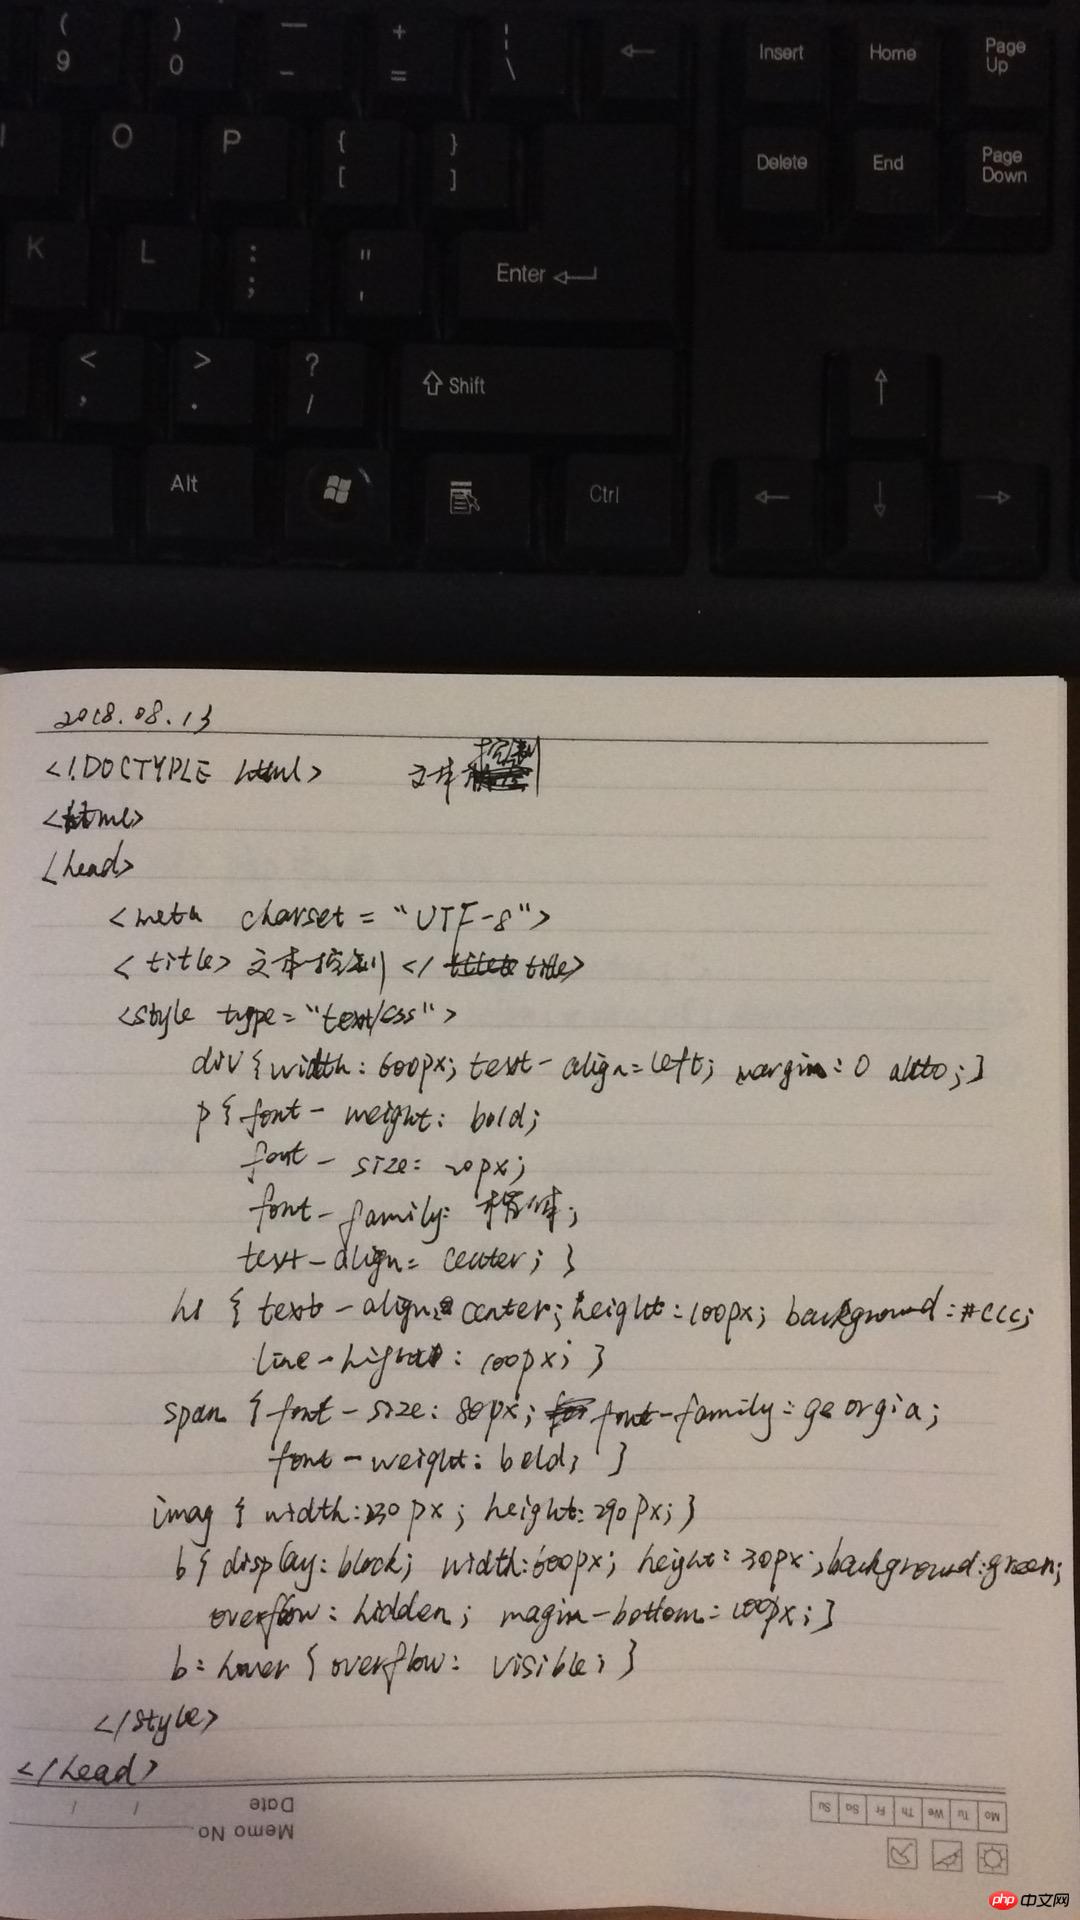 ( 9
) 0
— -
+ =
¦ \
←
Insert
Home
Page Up
O
P
{ [
} ]
Delete
End
Page Down
K
L
: ;
" '
Enter
< ,
> .
? /
Shift
Alt
Ctrl
2018.08.13
<!DOCTYPLE html> 文本控制
<html>
<head>
<meta charset = "UTF-8">
<title> 文本控制 </ title>
<style type="text/css">
div {width: 600px; text-align=left; margin: 0 auto;}
p { font-weight: bold;
font-size: 20px;
font-family: 楷体;
text-align= center; }
h1 { text-align: center; height: 100px; background: #ccc;
line-hight: 100px; }
span { font-size: 80px; font-family: georgia;
font-weight: bold; }
imag { width: 230px; height: 290px; }
b{ display: block; width: 600px; height: 30px; background: green;
overflow: hidden; magin-bottom: 100px; }
b: hover { overflow: visible; }
</style>
</head>
Date / /
Memo No
Mo Tu We Th Fr Sa Su
php 中文网